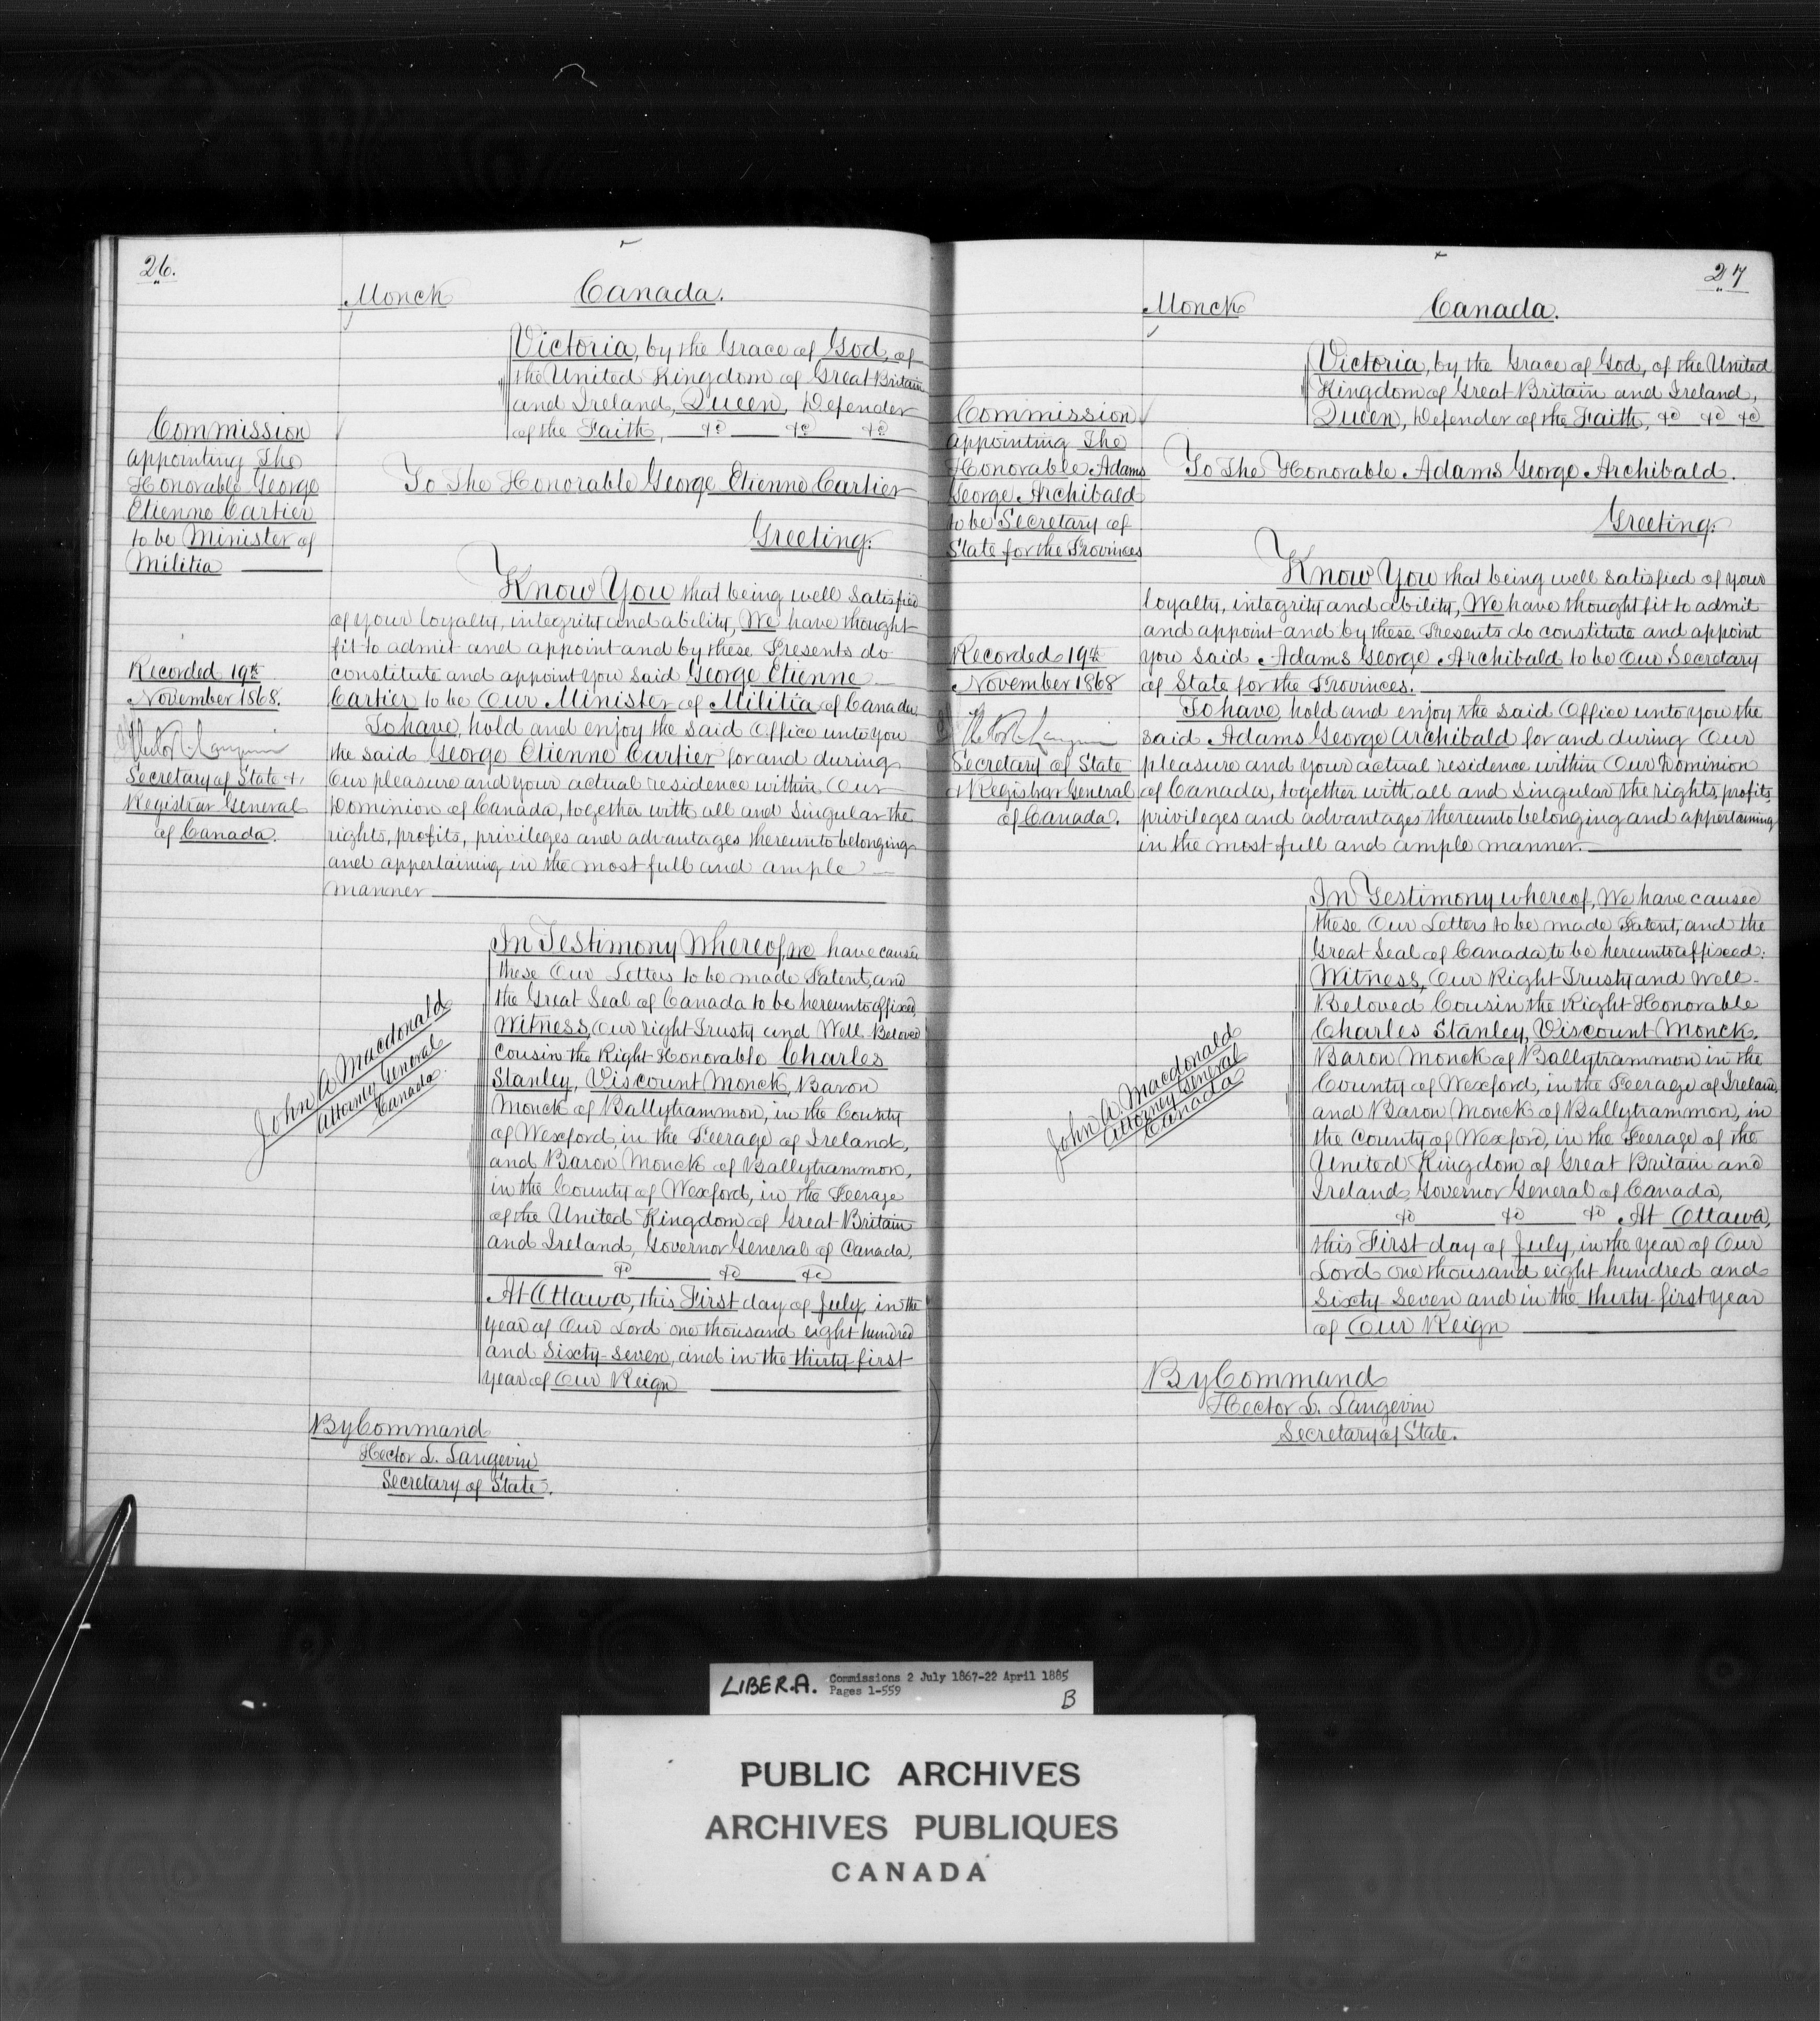 26.
Monck
Canada.
Victoria, by the Grace of God, of
the United Kingdom of Great Britain
and Ireland, Queen, Defender
of the Faith, &c &c &c
Commission
appointing The
Honorable George
Etienne Cartier
to be Minister of
Militia
To The Honorable George Etienne Cartier
Greeting:
Know You that being well satisfied
of your loyalty, integrity and ability, We have thought
fit to admit and appoint and by these Presents do
constitute and appoint you said George Etienne
Cartier to be Our Minister of Militia of Canada
Recorded 19th
November 1868.
Hector L. Langevin
Secretary of State &
Registrar General
of Canada.
To have, hold and enjoy the said Office unto you
the said George Etienne Cartier for and during
Our pleasure and your actual residence within Our
Dominion of Canada, together with all and singular the
rights, profits, privileges and advantages thereunto belonging
and appertaining in the most full and ample
manner
In Testimony Whereof, We have caused
these Our Letters to be made Patent, and
the Great Seal of Canada to be hereunto affixed,
Witness, Our right Trusty and Well Beloved
Cousin the Right Honorable Charles
Stanley, Viscount Monck, Baron
Monck of Ballytrammon, in the County
of Wexford, in the Peerage of Ireland,
and Baron Monck of Ballytrammon,
in the County of Wexford, in the Peerage
of the United Kingdom of Great Britain
and Ireland, Governor General of Canada,
&c &c &c
At Ottawa, this First day of July, in the
year of Our Lord one thousand eight hundred
and sixty-seven, and in the thirty first
year of Our Reign
John A Macdonald
Attorney General
Canada.
By Command
Hector L. Langevin
Secretary of State.
27
Monck
Canada.
Victoria, by the Grace of God, of the United
Kingdom of Great Britain and Ireland,
Queen, Defender of the Faith, &c &c &c
Commission
appointing The
Honorable Adams
George Archibald
to be Secretary of
State for the Provinces
To The Honorable Adams George Archibald.
Greeting:
Know You that being well satisfied of your
loyalty, integrity and ability, We have thought fit to admit
and appoint and by these Presents do constitute and appoint
you said Adams George Archibald to be Our Secretary
of State for the Provinces.
Recorded 19th
November 1868
Hector L. Langevin
Secretary of State
& Registrar General
of Canada.
To have, hold and enjoy the said Office unto you the
said Adams George Archibald for and during Our
pleasure and your actual residence within Our Dominion
of Canada, together with all and singular the rights, profits,
privileges and advantages thereunto belonging and appertaining
in the most full and ample manner.
In Testimony whereof, We have caused
these Our Letters to be made Patent, and the
Great Seal of Canada to be hereunto affixed:
Witness, Our Right Trusty and Well-
Beloved Cousin the Right Honorable
Charles Stanley, Viscount Monck,
Baron Monck of Ballytrammon in the
County of Wexford, in the Peerage of Ireland,
and Baron Monck of Ballytrammon, in
the County of Wexford, in the Peerage of the
United Kingdom of Great Britain and
Ireland, Governor General of Canada,
&c &c &c At Ottawa,
this First day of July, in the year of Our
Lord one thousand eight hundred and
Sixty Seven and in the thirty-first year
of Our Reign
John A Macdonald
Attorney General
Canada
By Command
Hector L. Langevin
Secretary of State.
LIBER.A. Commissions 2 July 1867-22 April 1885
Pages 1-559
B
PUBLIC ARCHIVES
ARCHIVES PUBLIQUES
CANADA